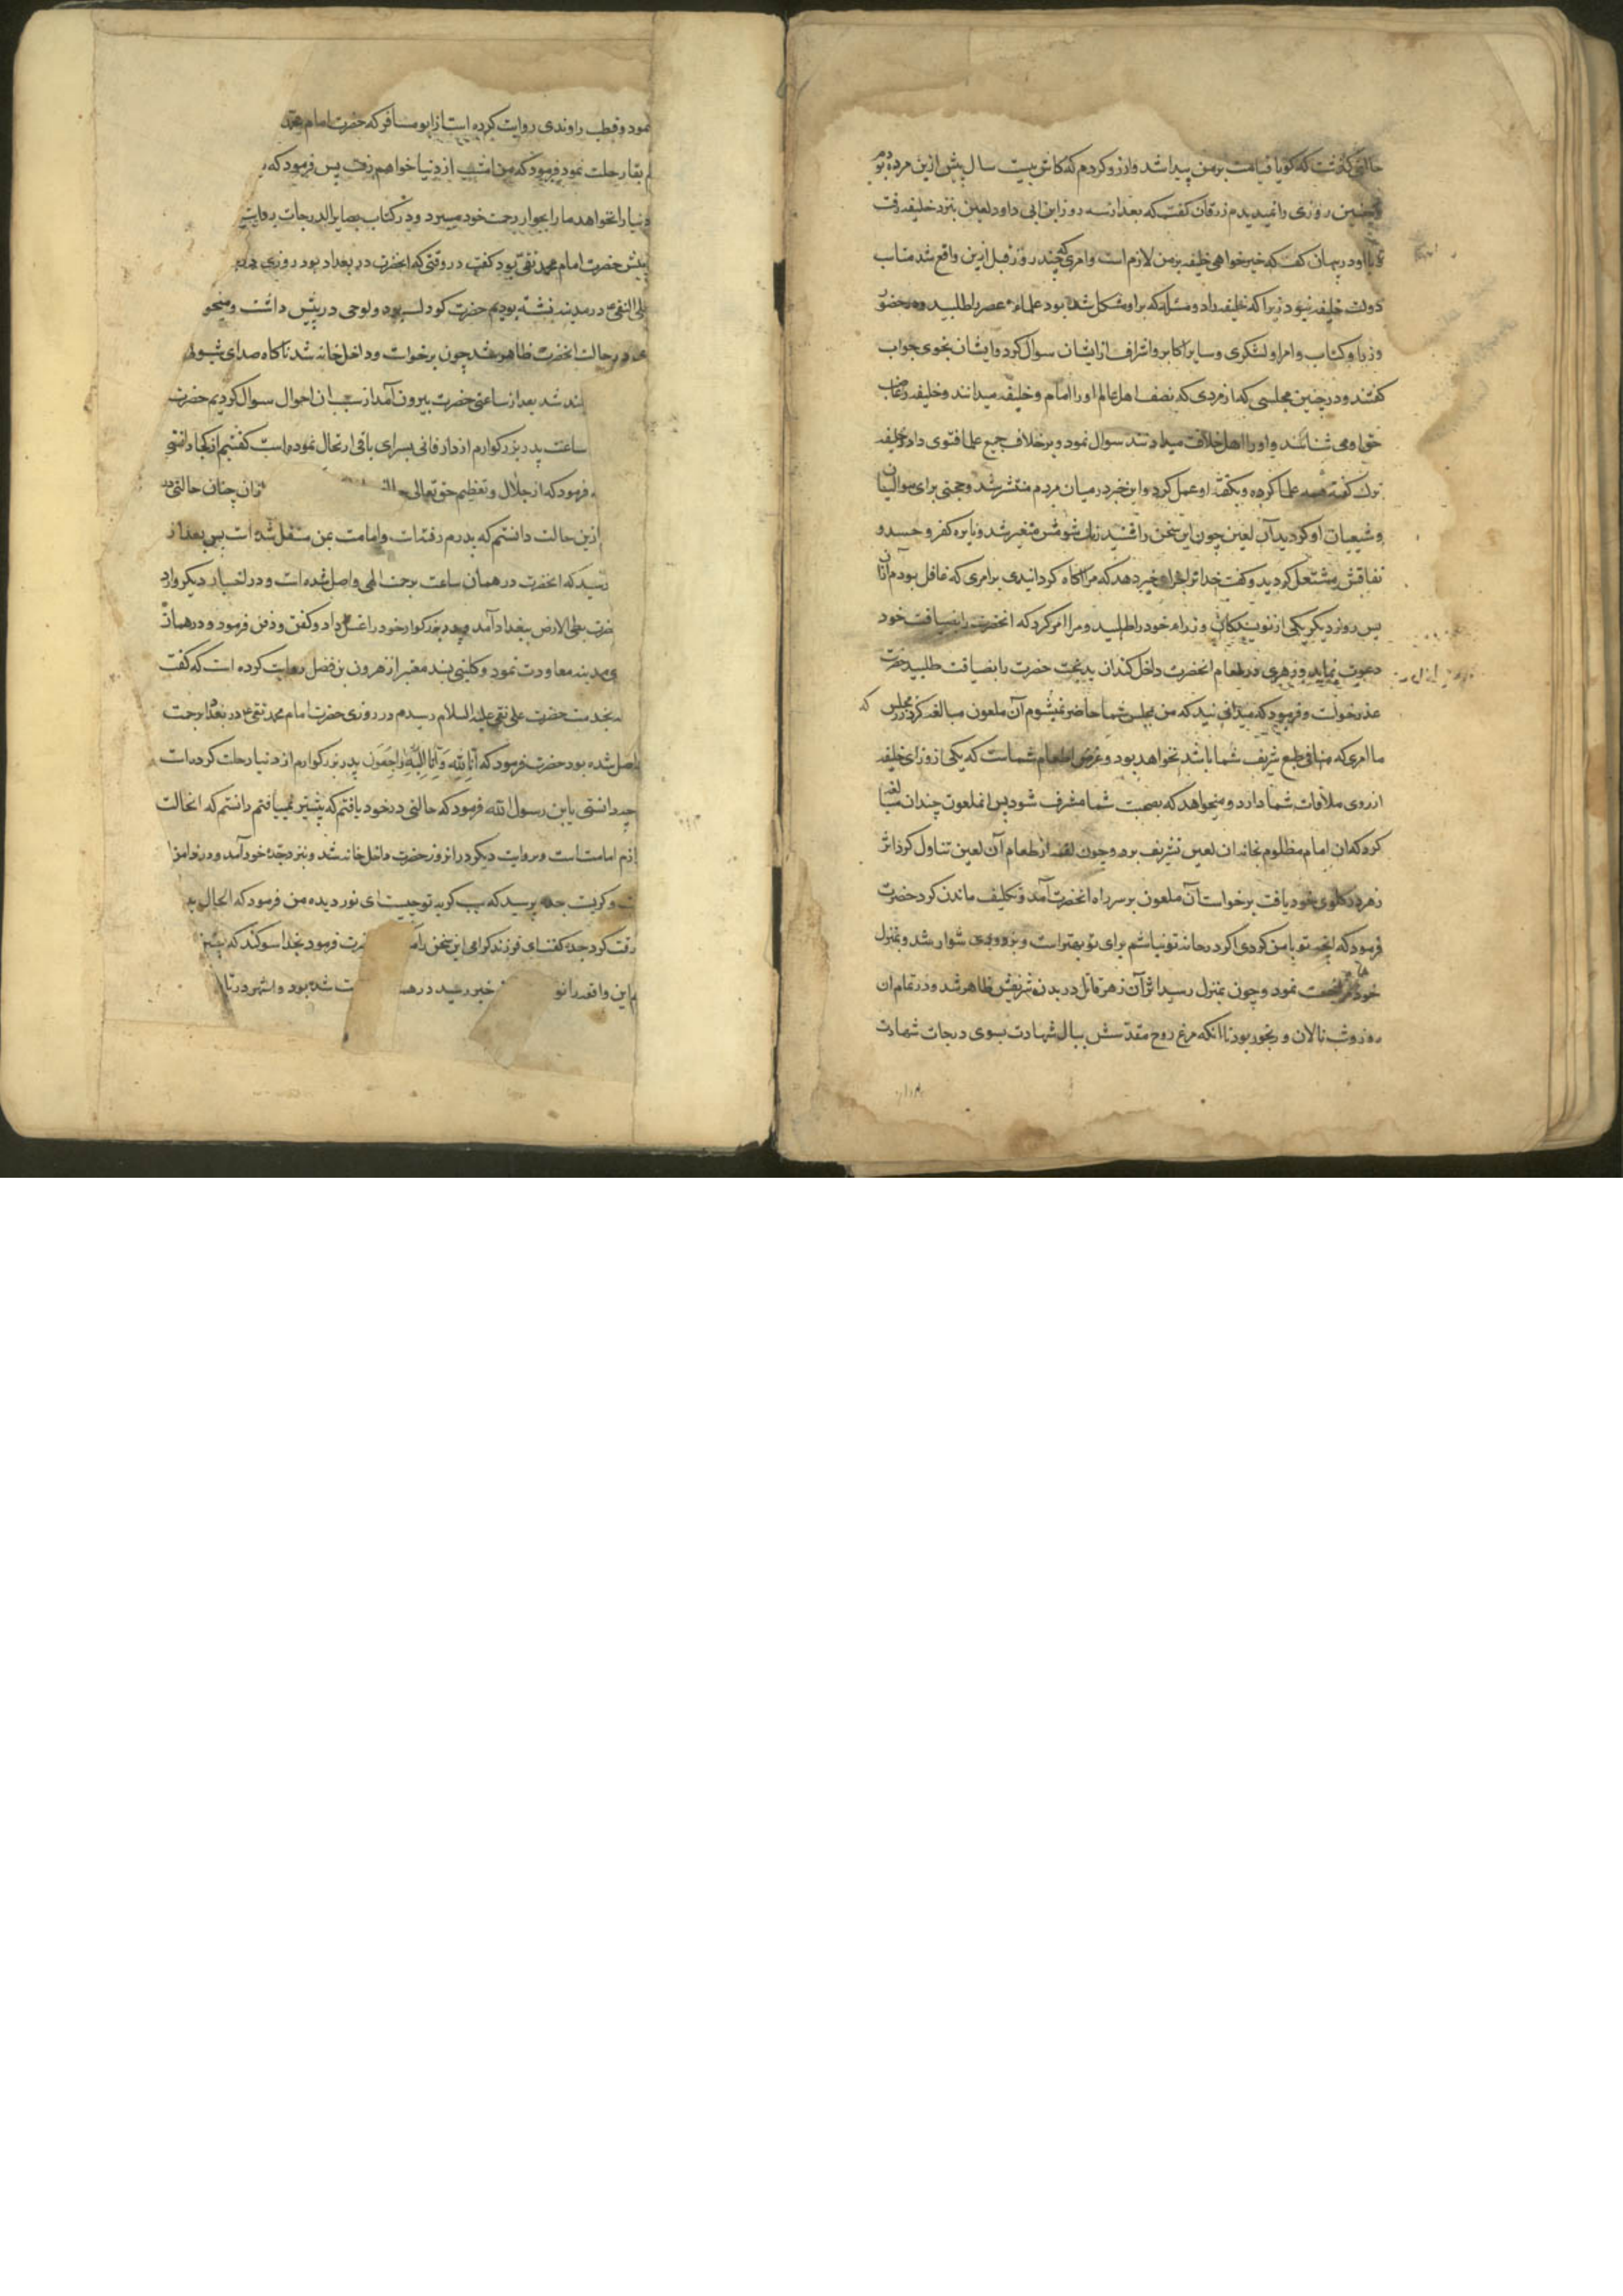 حالتی گذشت که گویا قیامت بر من پیدا شد و ارزو کردم که کاش بیست سال پیش ازین مرده بودم
و چنین روزی را نمیدیدم زرقان گفت که بعد از سه روز ابن ابی داود لعین بنزد خلیفه رفت
و با او در پنهان گفت که خیر خواهی خلیفه بر من لازم است و امری که چند روز قبل ازین واقع شد مناسب
دولت خلیفه نبود زیرا که خلیفه در مسئله که بر او مشکل شده بود علماء عصر را طلبید و در حضور
وزرا و کتاب و امرا و لشکری و سایر اکابر و اشراف از ایشان سوال کرد و ایشان بنحوی جواب
گفتند و در چنین مجلسی که از مردی که نصف اهل عالم او را امام و خلیفه میدانند و خلیفه را غاصب
حق او می شناسند و او را اهل خلاف میدانند سوال نمود و بر خلاف جمیع علما فتوی داد و خلیفه
ترک گفته همه علما کرده و بگفته او عمل کرد و این خبر در میان مردم منتشر شد و حجتی برای موالیان
و شیعیان او گردید آن لعین چون این سخن را شنید رنک شومش متغیر شد و نایره کفر و حسد و
نفاقش مشتعل گردید و گفت خدا ترا جزای خیر دهد که مرا اگاه گردانیدی بر امری که غافل بودم از آن
پس روز دیگر یکی از نویسندگان وزراء خود را طلبید و مرا امر کرد که انحضرت را بضیافت خود
دعوت نماید و زهری در طعام انحضرت داخل کند ان بدبخت حضرت را بضیافت طلبید حضرت
عذر خواست و فرمود که میدانید که من بمجلس شما حاضر نمیشوم آن ملعون مبالغه کرد که در مجلس
ما امری که منافی طبع شریف شما باشد نخواهد بود و غرض اطعام شماست که یکی از وزرای خلیفه
ارزوی ملاقات شما دارد و میخواهد که بصحبت شما مشرف شود پس انملعون چندان مبالغه
کرد که ان امام مظلوم بخانه ان لعین تشریف برد و چون لقمه از طعام آن لعین تناول کرد اثر
زهر در گلوی خود یافت برخواست آن ملعون بر سر راه انحضرت آمد و تکلیف ماندن کرد حضرت
فرمود که آنچه تو با من کردی اگر در خانه تو نباشم برای تو بهتر است و بزودی سوار شد و بمنزل
خود مراجعت نمود و چون بمنزل رسید اثر آن زهر قاتل در بدن شریفش ظاهر شد و در تمام ان
روز و شب نالان و رنجور بود تا انکه مرغ روح مقدسش ببال شهادت بسوی درجات شهادت
نمود و قطب راوندی روایت کرده است از ابو مسافر که حضرت امام محمد
بقا رحلت نمود فرمود که من امشب از دنیا خواهم رفت پس فرمود که
دنیا را نخواهد ما را بجوار رحمت خود میبرد و در کتاب بصایر الدرجات روایت
پیش حضرت امام محمد تقی بود گفت در وقتی که انحضرت در بغداد بود روزی
علی النقی ع در مدینه نشسته بودیم حضرت کودک بود و لوحی در پیش داشت و میخو
در حالت انحضرت ظاهر شد چون برخواست و داخل خانه شد ناگاه صدای شیون
بلند شد بعد از ساعتی حضرت بیرون آمد از سبب ان احوال سوال کردیم حضرت
ساعت پدر بزرکوارم از دار فانی بسرای باقی ارتحال نموده است گفتیم از کجا دانستی
فرمود که از جلال و تعظیم حق تعالی چنان حالتی
ازین حالت دانستم که پدرم رفته است و امامت بمن منتقل شده است پس بعد از
رسید که انحضرت در همان ساعت برحمت الهی واصل شده است و در اخبار دیگر وارد
حضرت بطی الارض ببغداد آمد و پدر بزرکوار خود را غسل داد و کفن و دفن فرمود و در همان
بمدینه معاودت نمود و کلینی بسند معتبر از هرون بن فضل روایت کرده است که گفت
بخدمت حضرت علی نقی علیه السلام رسیدم در روزی حضرت امام محمد تقی ع در بغداد برحمت
واصل شده بود حضرت فرمود که انا لله و انا الیه راجعون پدر بزرکوارم از دنیا رحلت کرده است
چه دانستی یا بن رسول الله فرمود که حالتی در خود یافتم که پیشتر نمییافتم دانستم که انحالت
لازم امامت است و بروایت دیگر در انروز حضرت داخل خانه شد و بنزد جده خود آمد و در دامن
و کریست جده پرسید که سبب کریه تو چیست ای نور دیده من فرمود که الحال
رفت کرد جده گفت ای فرزند کرامی این سخن را حضرت فرمود بخدا سوکند که
این واقعه را خبر رسید در شده بود و اشهر در